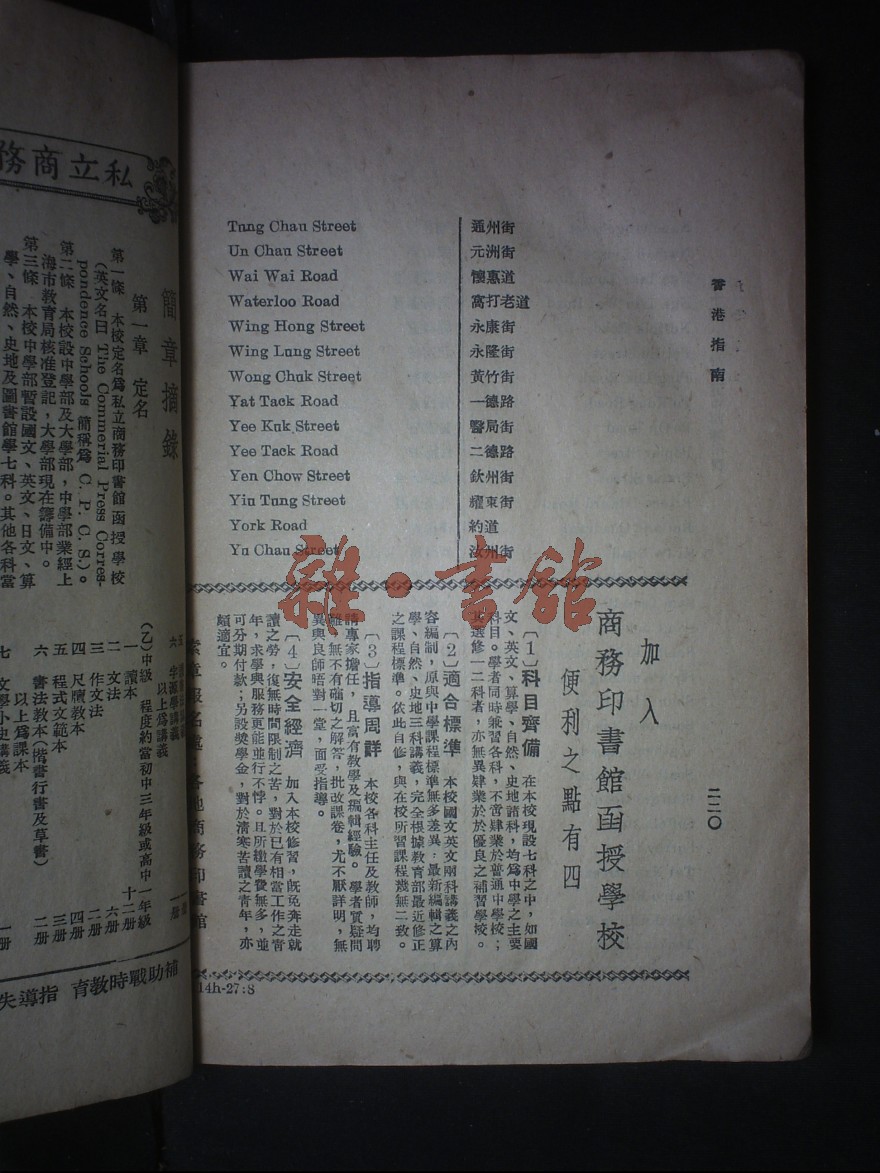 香港指南
二二〇
Tung Chau Street 通州街
Un Chau Street 元洲街
Wai Wai Road 懷惠道
Waterloo Road 窩打老道
Wing Hong Street 永康街
Wing Lung Street 永隆街
Wong Chuk Street 黃竹街
Yat Tack Road 一德路
Yee Kuk Street 醫局街
Yee Tack Road 二德路
Yen Chow Street 欽州街
Yiu Tung Street 耀東街
York Road 約道
Yu Chau Street 汝州街
雜·書館
加入
商務印書館函授學校
便利之點有四
〔1〕科目齊備 在本校現設七科之中，如國
文、英文、算學、自然、史地諸科，均為中學之主要
科目。學者同時兼習各科，不啻肄業於普通中學校；
其選修一二科者，亦無異肄業於於優良之補習學校。
〔2〕適合標準 本校國文英文兩科講義之內
容編制，原與中學課程標準無多差異；最新編輯之算
學、自然、史地三科講義，完全根據教育部最近修正
之課程標準。依此自修，與在校所習課程幾無二致。
〔3〕指導周詳 本校各科主任及教師，均聘
請專家擔任，且富有教學及編輯經驗。學者質疑問
難，無不有確切之解答，批改課卷，尤不厭詳明，無
異與良師晤對一堂，面受指導。
〔4〕安全經濟 加入本校修習，旣免奔走就
讀之勞，復無時間限制之苦，對於已有相當工作之青
年，求學與服務更能並行不悖。且所繳學費無多，並
可分期付款；另設奬學金，對於清寒苦讀之青年，亦
頗適宜。
索章報名處 各地商務印書館
14h-27:8
私立商務
簡章摘錄
第一章 定名
第一條 本校定名爲私立商務印書館函授學校
（英文名曰 The Commercial Press Corres-
pondence Schools 簡稱爲 C. P. C. S.）。
第二條 本校設中學部及大學部，中學部業經上
海市教育局核准登記，大學部現在籌備中。
第三條 本校中學部暫設國文、英文、日文、算
學、自然、史地及圖書館學七科。其他各科當
以上爲講義
（乙）中級 程度約當初中三年級或高中一年級
一 讀本 十二册
二 文法 六册
三 作文法 二册
四 尺牘教本 四册
五 程式文範本 三册
六 書法教本（楷書行書及草書） 二册
以上爲課本
七 文學小史講義 一册
補助戰時教育 指導失